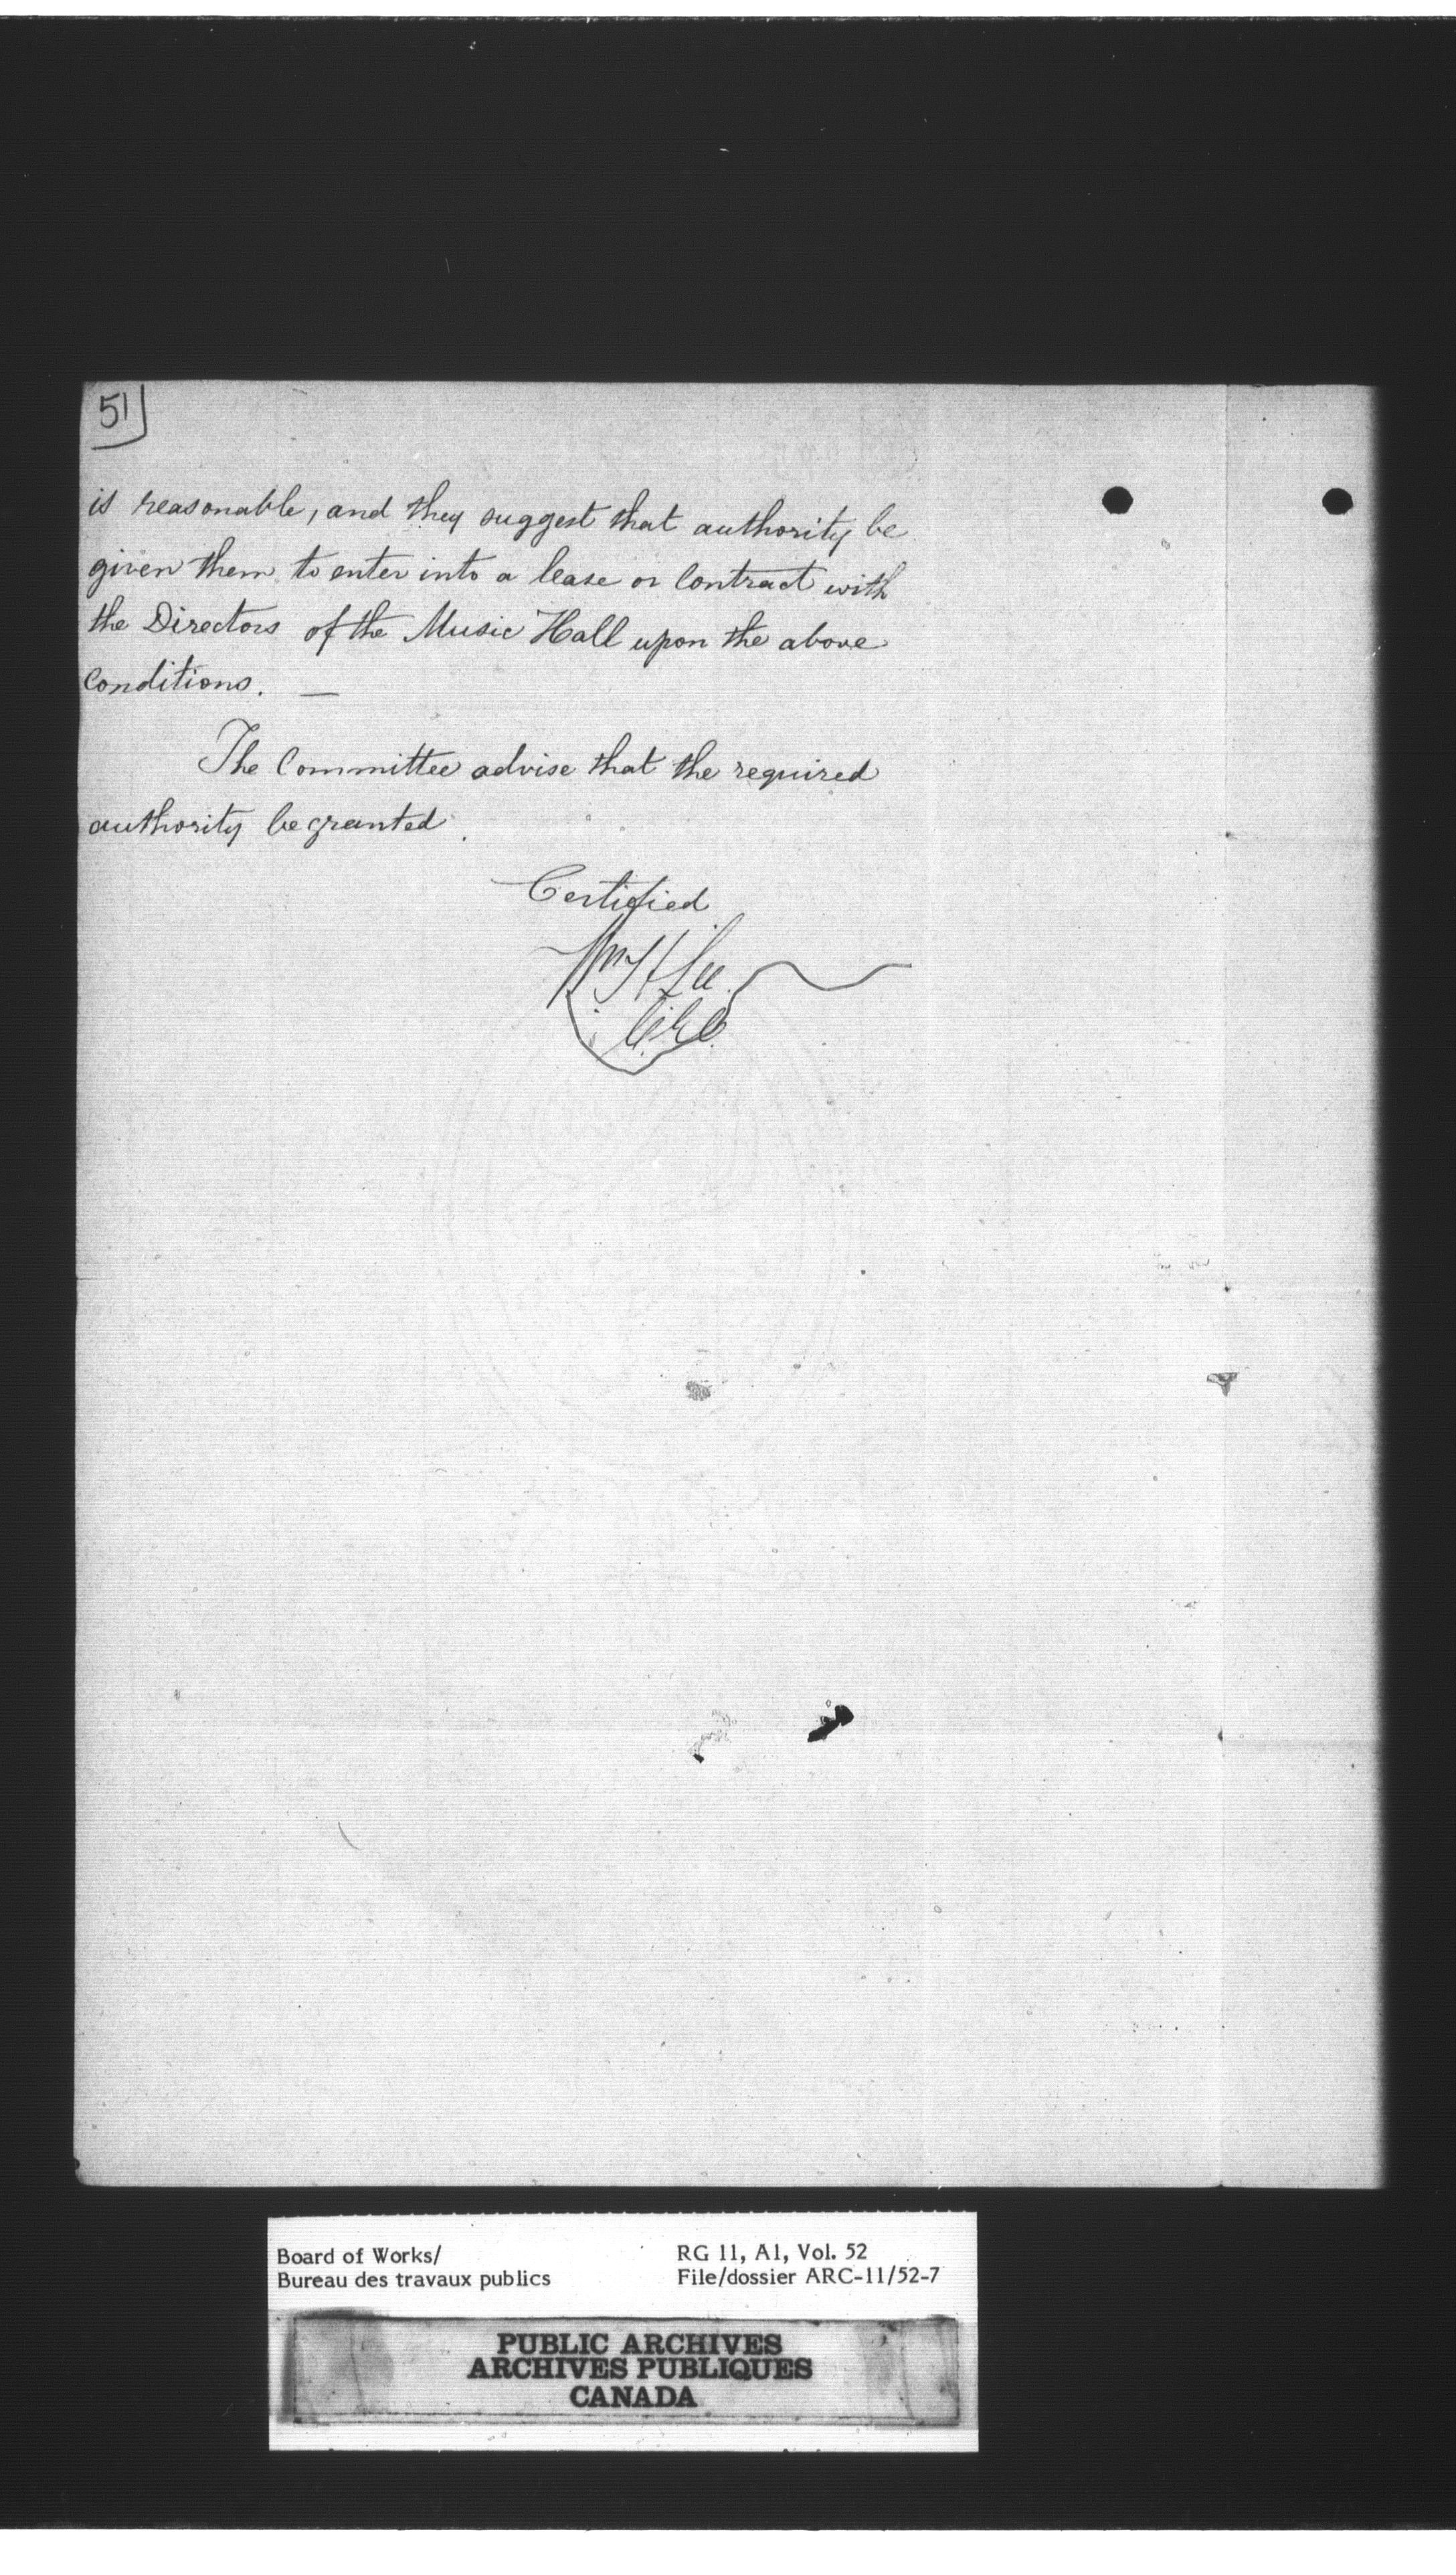 51
is reasonable, and they suggest that authority be
given them to enter into a lease or Contract with
the Directors of the Music Hall upon the above
Conditions. —
The Committee advise that the required
authority be granted.
Certified
Wm H Lee
C.E.C.
Board of Works/
Bureau des travaux publics
RG 11, A1, Vol. 52
File/dossier ARC-11/52-7
PUBLIC ARCHIVES
ARCHIVES PUBLIQUES
CANADA